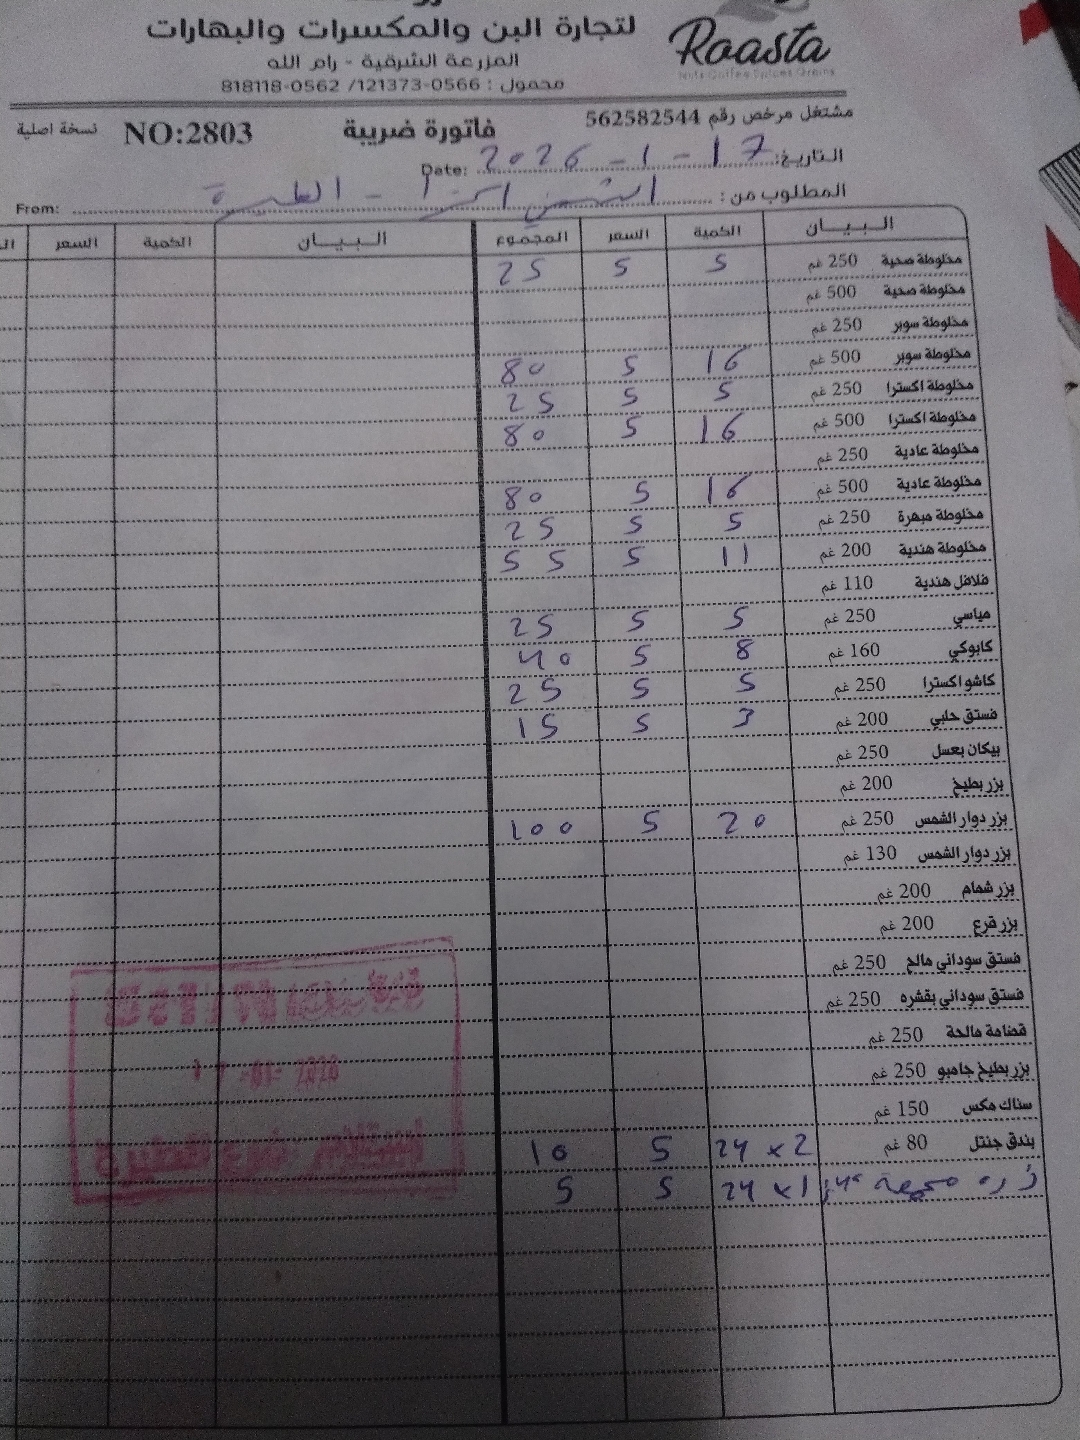 Roasta
Nuts Coffee Spices Grains
لتجارة البن والمكسرات والبهارات
المزرعة الشرقية - رام الله
محمول : 0566-121373 / 0562-818118
مشتغل مرخص رقم 562582544 فاتورة ضريبة NO:2803 نسخة اصلية
التاريخ: 17-1-2026 Date:
المطلوب من: From:
البيان الكمية السعر المجموع البيان الكمية السعر
مخلوطة صحية 250 غم 5 5 25
مخلوطة صحية 500 غم
مخلوطة سوبر 250 غم
مخلوطة سوبر 500 غم 16 5 80
مخلوطة اكسترا 250 غم 5 5 25
مخلوطة اكسترا 500 غم 16 5 80
مخلوطة عادية 250 غم
مخلوطة عادية 500 غم 16 5 80
مخلوطة مبهرة 250 غم 5 5 25
مخلوطة هندية 200 غم 11 5 55
فلافل هندية 110 غم
مياسي 250 غم 5 5 25
كابوكي 160 غم 8 5 40
كاشو اكسترا 250 غم 5 5 25
فستق حلبي 200 غم 3 5 15
بيكان بعسل 250 غم
بزر بطيخ 200 غم
بزر دوار الشمس 250 غم 20 5 100
بزر دوار الشمس 130 غم
بزر شمام 200 غم
بزر قرع 200 غم
فستق سوداني مالح 250 غم
فستق سوداني بقشره 250 غم
قضامة مالحة 250 غم
بزر بطيخ جامبو 250 غم
سناك مكس 150 غم
بندق جنتل 80 غم 24 x 2 5 10
ذره 24 x 1 5 5